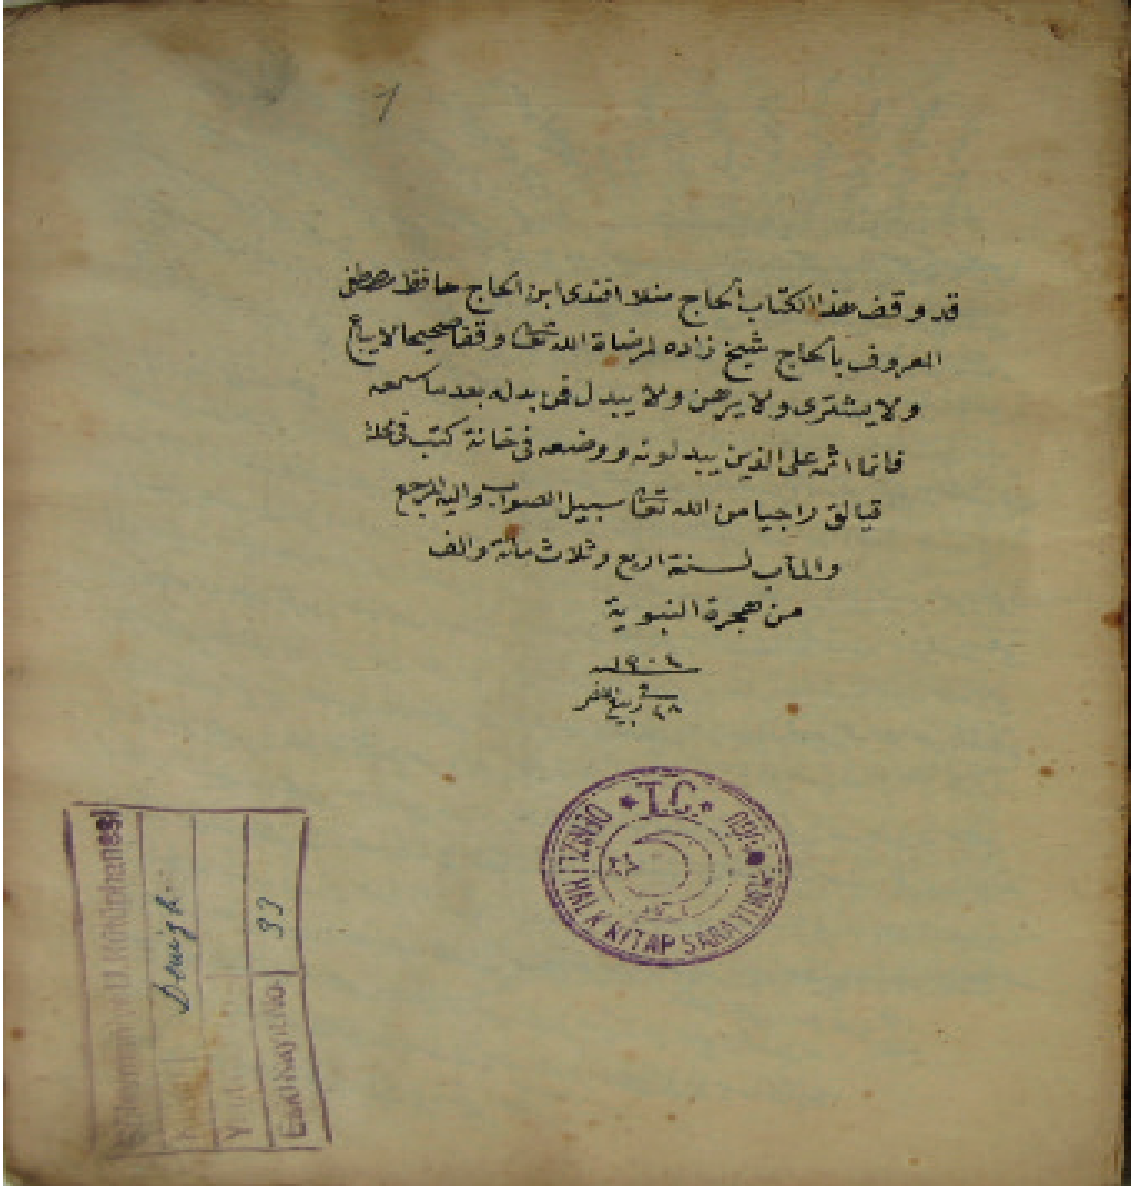 قد وقف هذا الكتاب الحاج منلا افندى ابن الحاج حافظ مصطفى
المعروف بالحاج شيخ زاده لمرضاة الله تعا وقفا صحيحا لا يباع
ولا يشترى ولا يرهن ولا يبدل فمن بدله بعد ما سمعه
فانما اثمه على الذين يبدلونه ووضعه فى خانة كتب فى محلة
قيالق راجيا من الله تعا سبيل الصواب واليه المرجع
والمآب لسنة اربع وثلاث مائة والف
من هجرة النبوية
١٣٠٤
T.C.
DENİZLİ HALK KİTAP SARAYI
Süleymaniye U. Kütüphanesi
Denizli
Eski Kayıt No.